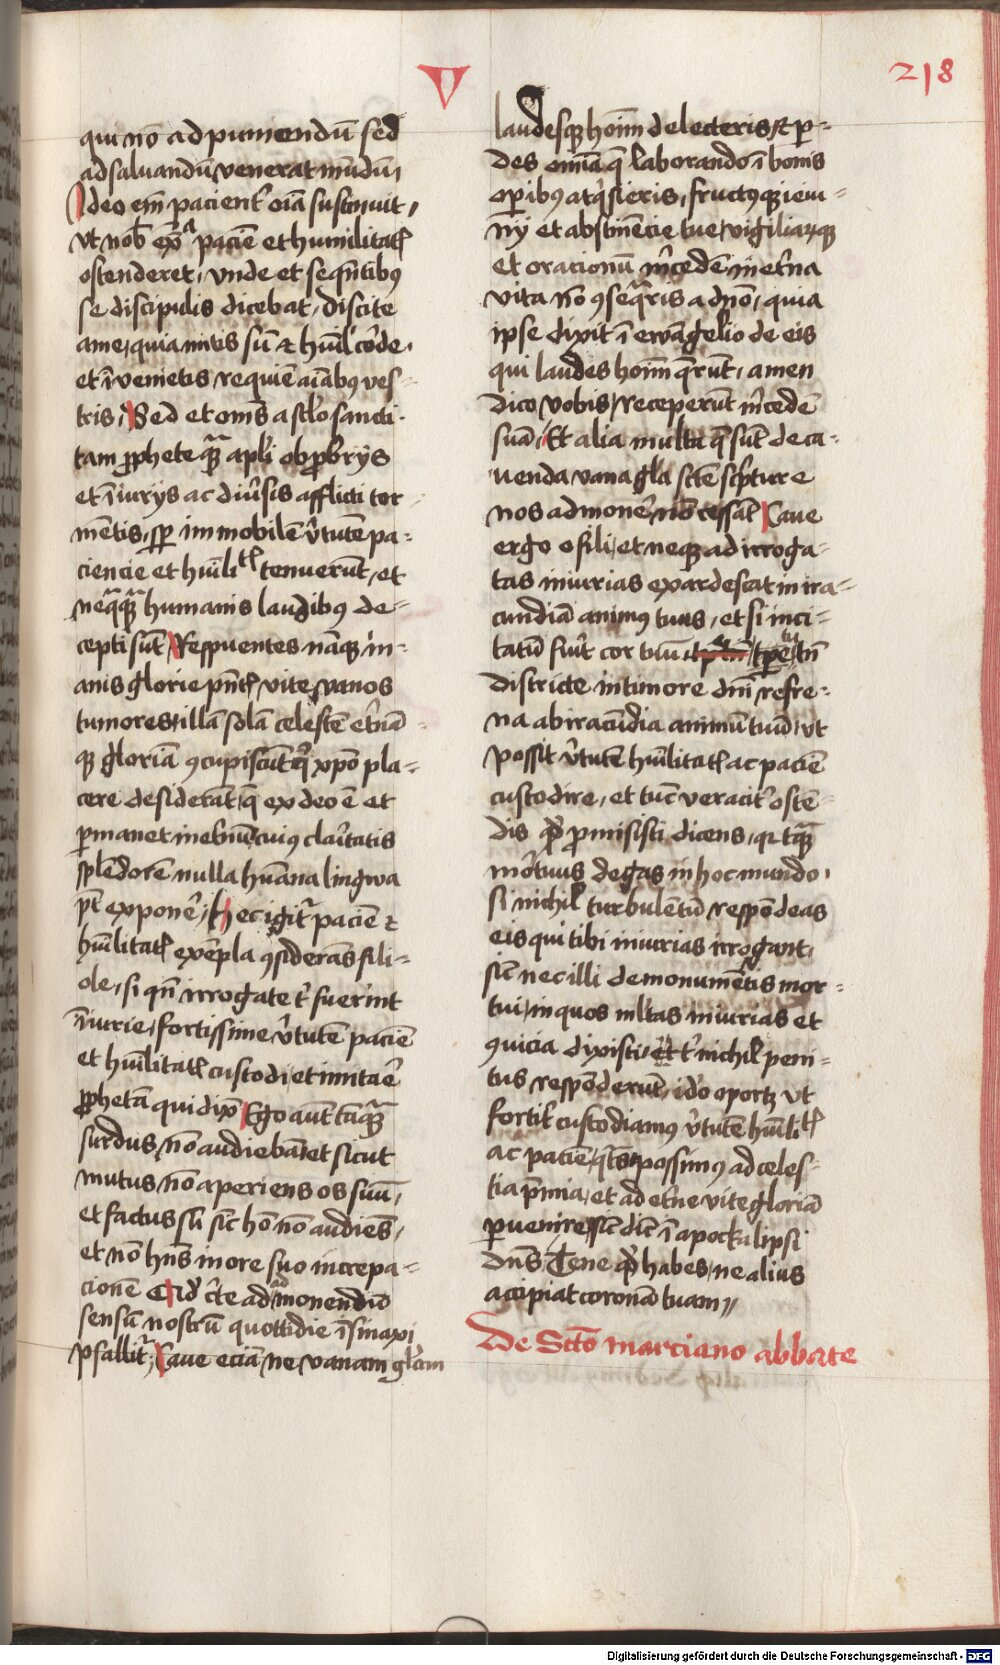 V
218
qui nō ad puniendū sed
ad saluandū venerat mūdū,
Ideo em̄ pacient̛ oīa sustinuit,
vt nob̄ exp̄ᵃ paciē et humilitat̄
ostenderet, vnde et seqn̄tibꝯ
se discipulis dicebat, discite
a me, quia mitis sū ⁊ hūil̛ corde.
et īvenietis requiē aīabꝯ ves-
tris, Sed et om̄s a sclo sancti.
tam ꝓphete qᵃ̄ apl̛i obꝓbrijs
et īiurijs ac diưsis afflicti tor-
mētis, ꝑ immobilē v̛tutē pa-
ciencie et hūili tꝭ tenuerūt, et
neqᵃ̄qᵃ̄ humanis laudibꝯ de-
cepti sūt, Respuentes nāqꝫ in-
anis glorie pn̄tꝭ vite, vanos
tumores, illā solā celestē et̛nā-
qꝫ gloriā ꝯcupiscūt, q̇ xp̄o pla-
cere desiderāt, q̄ ex deo ē et
ꝑmanet in et̛nū, cuiꝯ clari̛tatis
splēdorē nulla hūana lingwa
pt̄ exponē̛, Hec igit̛ᵃ paciē ⁊
hūilitatꝭ exēpla ꝯsiderās fili-
ole, si qn̄ irrogate t̛ fuerint
īiurie, fortissime v̛tutē paciē
et hūilitatꝭ custodi et imitarē̛
ꝓphetā qui dix̄ Ego aut̄ tāqᵃ̄
surdus, nō audiebā, et sicut
mutus nō aperiens os suū,
et factus sū sic̄ hō nō audiēs,
et nō hn̄s in ore suo increpa-
cionē Qd̛ c̛te ad ad monendū
sensū nostrū quottidie ī sinaxi
psallit̛ᵃ, Caue eciā, ne vanam gl̄am
laudesqꝫ hoīm delecteris, ⁊ ꝑ-
des omīa q̄ laborando ī bonis
oꝑibꝯ atq̇sieris, fructūqꝫ ieiu-
nij et abstinēcie tue, vigiliarūqꝫ
et orationū m̛cedē in et̛na
vita nō ꝯseqᵃris a dnō, quia
ipse dixit ī ewāgelio de eis
qui laudes hoīm q̄rūt, amen
dico vobis, receperūt m̛cedē
suā, Et alia multa q̄ sūt de ca-
uenda vana gl̄a scte scpture
nos admonē̛ nō cessāt Caue
ergo o fili, et neqꝫ ad irroga-
tas iniurias exardescat in ira-
cundiā animꝯ tuus, et si inci-
tatū fưit cor tuū tpe tn̄
districte in timore dn̄i refre-
na ab iracūdia animū tuū, vt
possit v̛tutē hūilitatꝭ ac paciē
custodire, et tūc veracit̛ ostē-
dis qd̛ ꝓmisisti dicens, qr tāqᵃ̄
mortuus degas in hoc mundo.
si nichil turbulētū respōdeas
eis qui tibi iniurias irrogant.
sic̄ nec illi de monumētis mor-
tui, in quos ml̛tas iniurias et
ꝯuicia dixisti, et t̛ nichil peni-
tus respōderūt, ido oportꝫ vt
fortit̛ custodiamꝯ v̛tutē hūili tꝭ
ac patiē, q̄tꝯ possimꝯ ad celes-
tia p̄mia, et ad et̛ne vite gloriā
ꝑuenire, sic̄ dic̄ ī apockalipsi
dn̄s, Tene qd̛ habes, ne alius
accipiat coronā tuam,,
De Scto marciano abbate
Digitalisierung gefördert durch die Deutsche Forschungsgemeinschaft - DFG